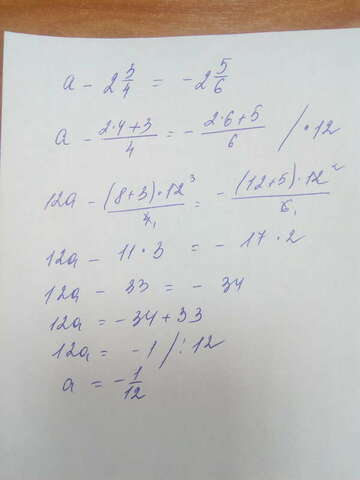 a - 2 3/4 = - 2 5/6
a - (2·4+3)/4 = - (2·6+5)/6 / ·12
12a - ((8+3)·12³)/4₁ = - ((12+5)·12²)/6₁
12a - 11·3 = - 17·2
12a - 33 = - 34
12a = - 34 + 33
12a = - 1 / : 12
a = - 1/12